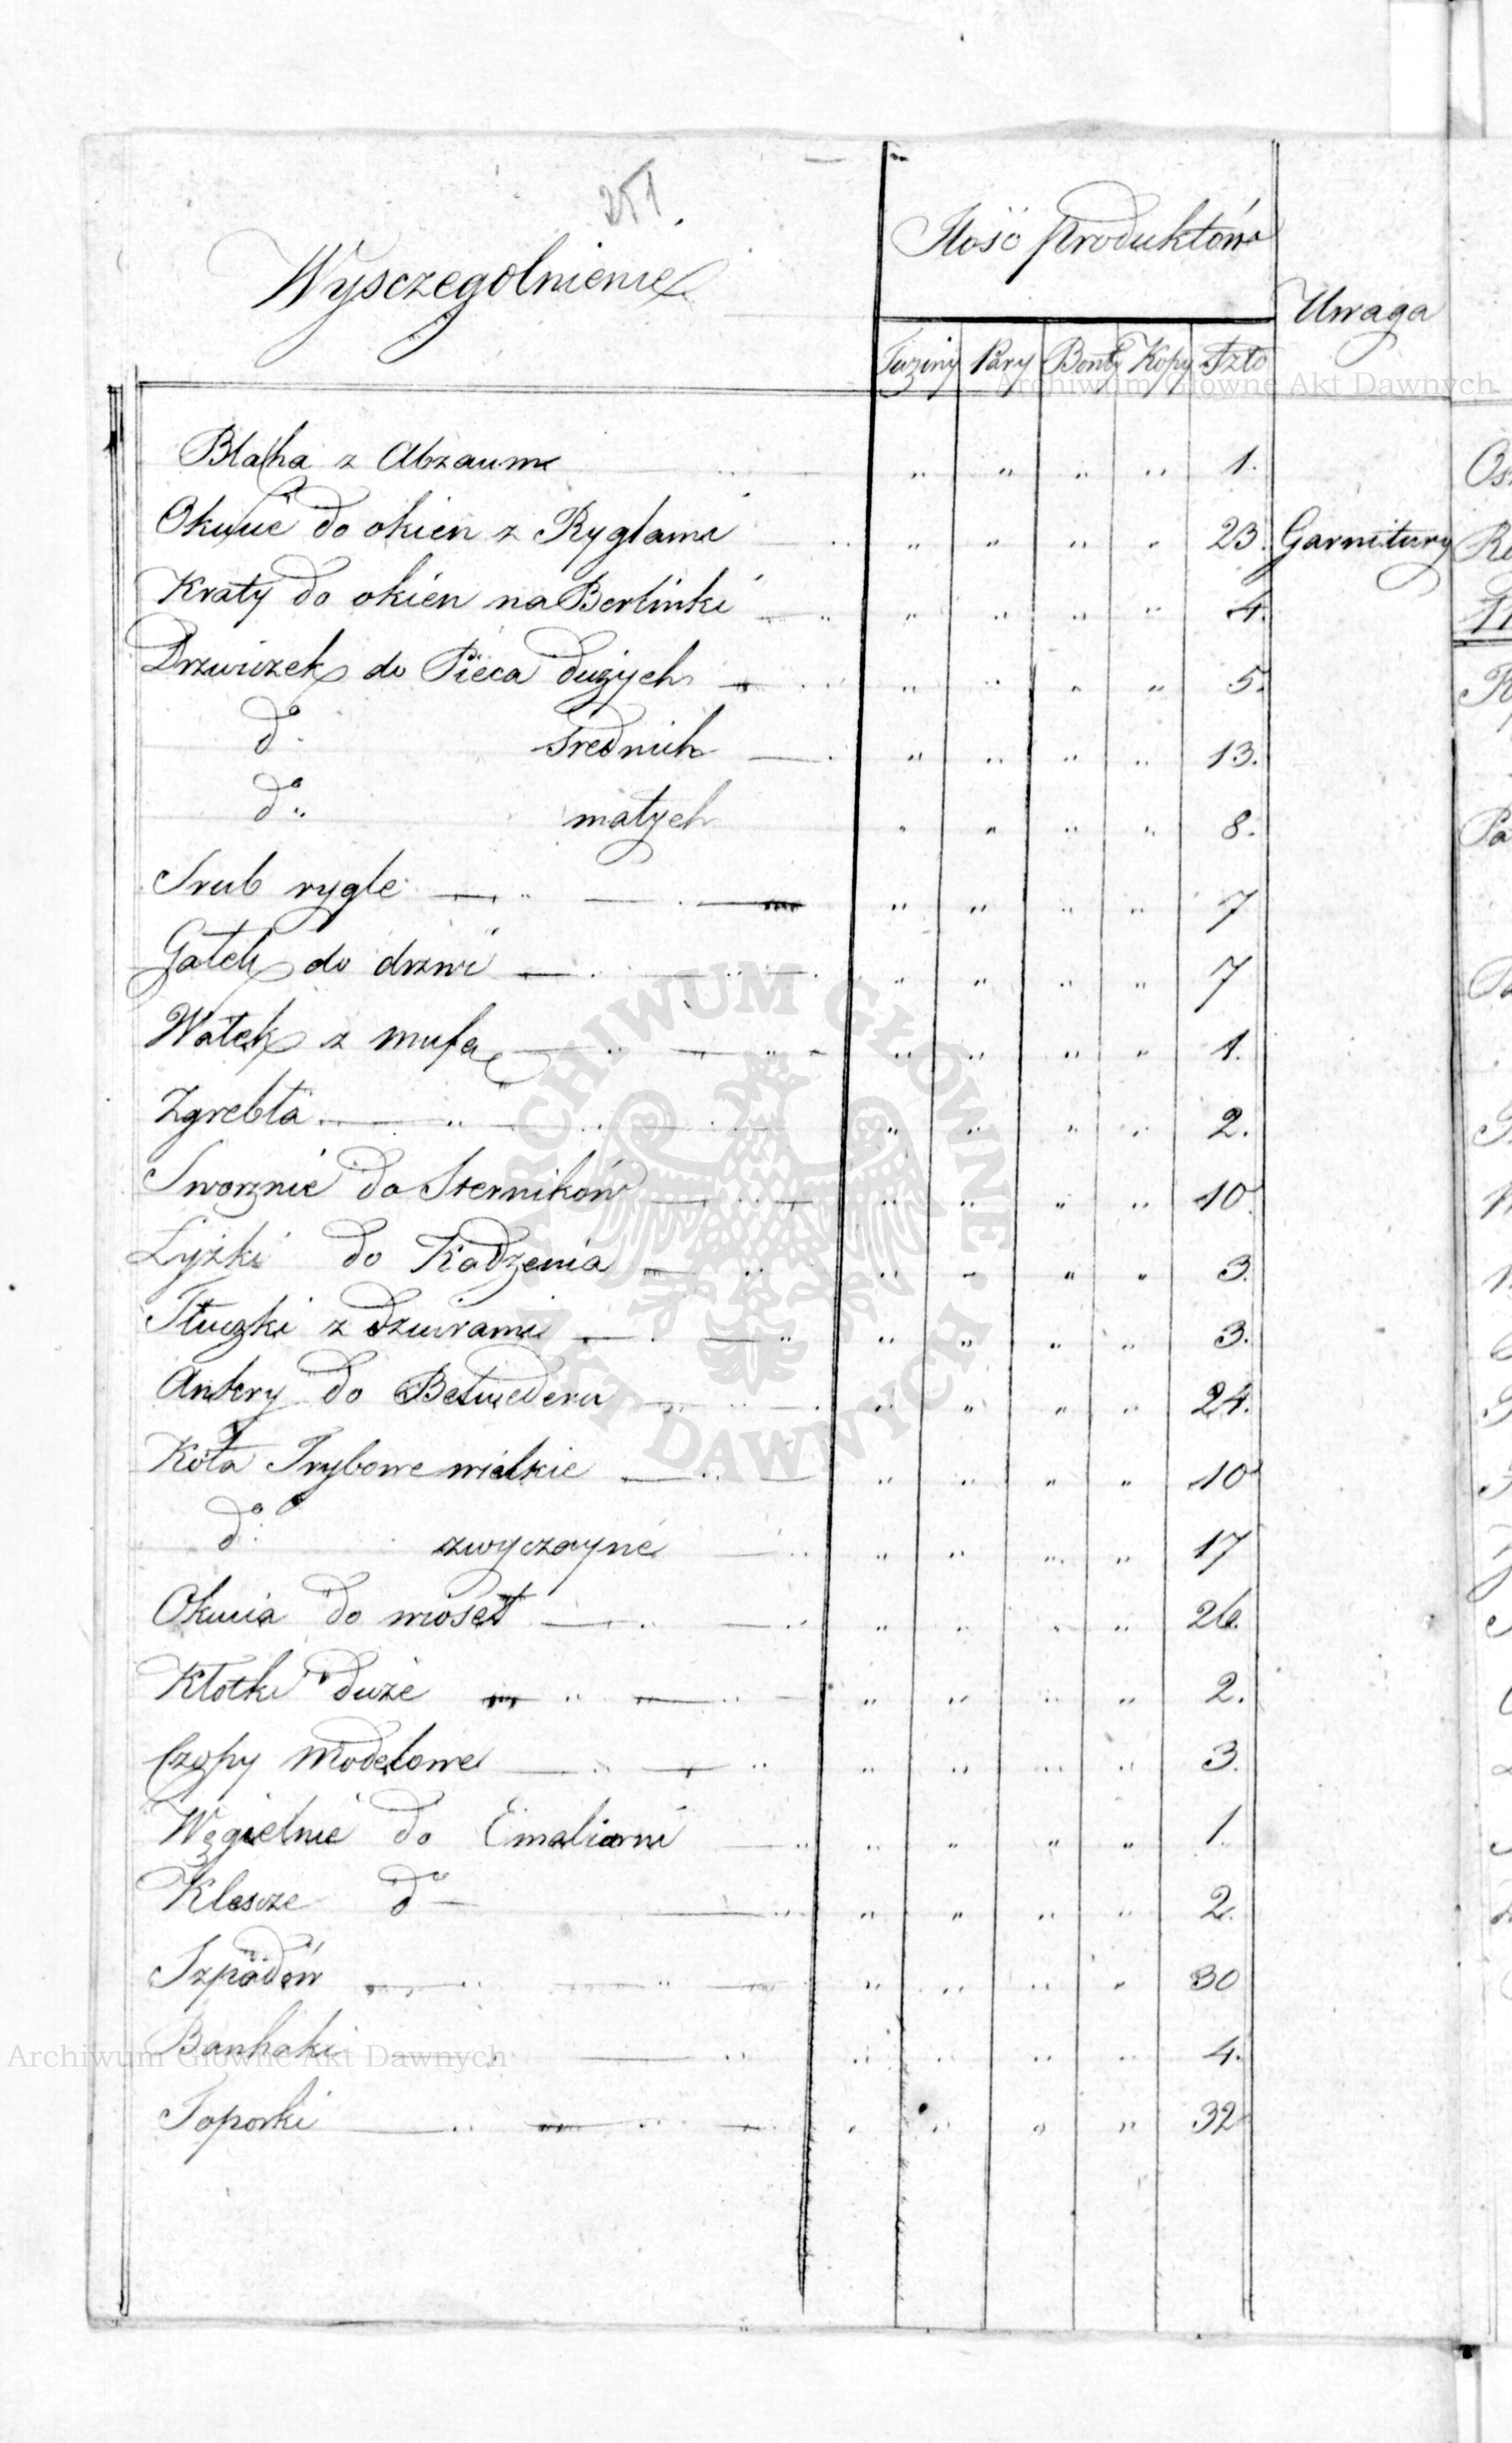 251.
Wysczegolnienie
Ilość produktów
Uwaga
Tuziny Pary Bonty Kopy Szto
Blacha z Abzaume " " " " 1.
Okuuć do okien z Ryglami " " " " 23. Garnitury
Kraty do okien na Berlinki " " " " 4.
Drzwiczek do Pieca dużych " " " " 5.
do średnich " " " " 13.
do małych " " " " 8.
Srub rygle " " " " 7
Gałek do drzwi " " " " 7
Wałek z mufą " " " " 1.
Zgrebła " " " " 2.
Sworznie do Sterników " " " " 10
Łyżki do Kadzenia " " " " 3.
Tłuczki z dziurami " " " " 3.
Ankry do Belwederu " " " " 24.
Koła Trybowe wielkie " " " " 10
do zwyczayne " " " " 17
Okucia do wioseł " " " " 26.
Kłotki duże " " " " 2.
Czopy Modelowe " " " " 3.
Węgielnie do Emaliarni " " " " 1.
Klescze do " " " " 2.
Szpadów " " " " 30
Banhaki " " " " 4.
Toporki " " " " 32
Archiwum Główne Akt Dawnych
ARCHIWUM GŁÓWNE AKT DAWNYCH
Archiwum Główne Akt Dawnych